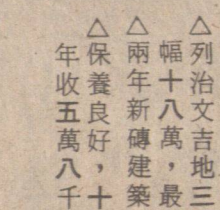 △列治文吉地三
幅十八萬，最
△兩年新磚建築
△保養良好，十
年收五萬八千